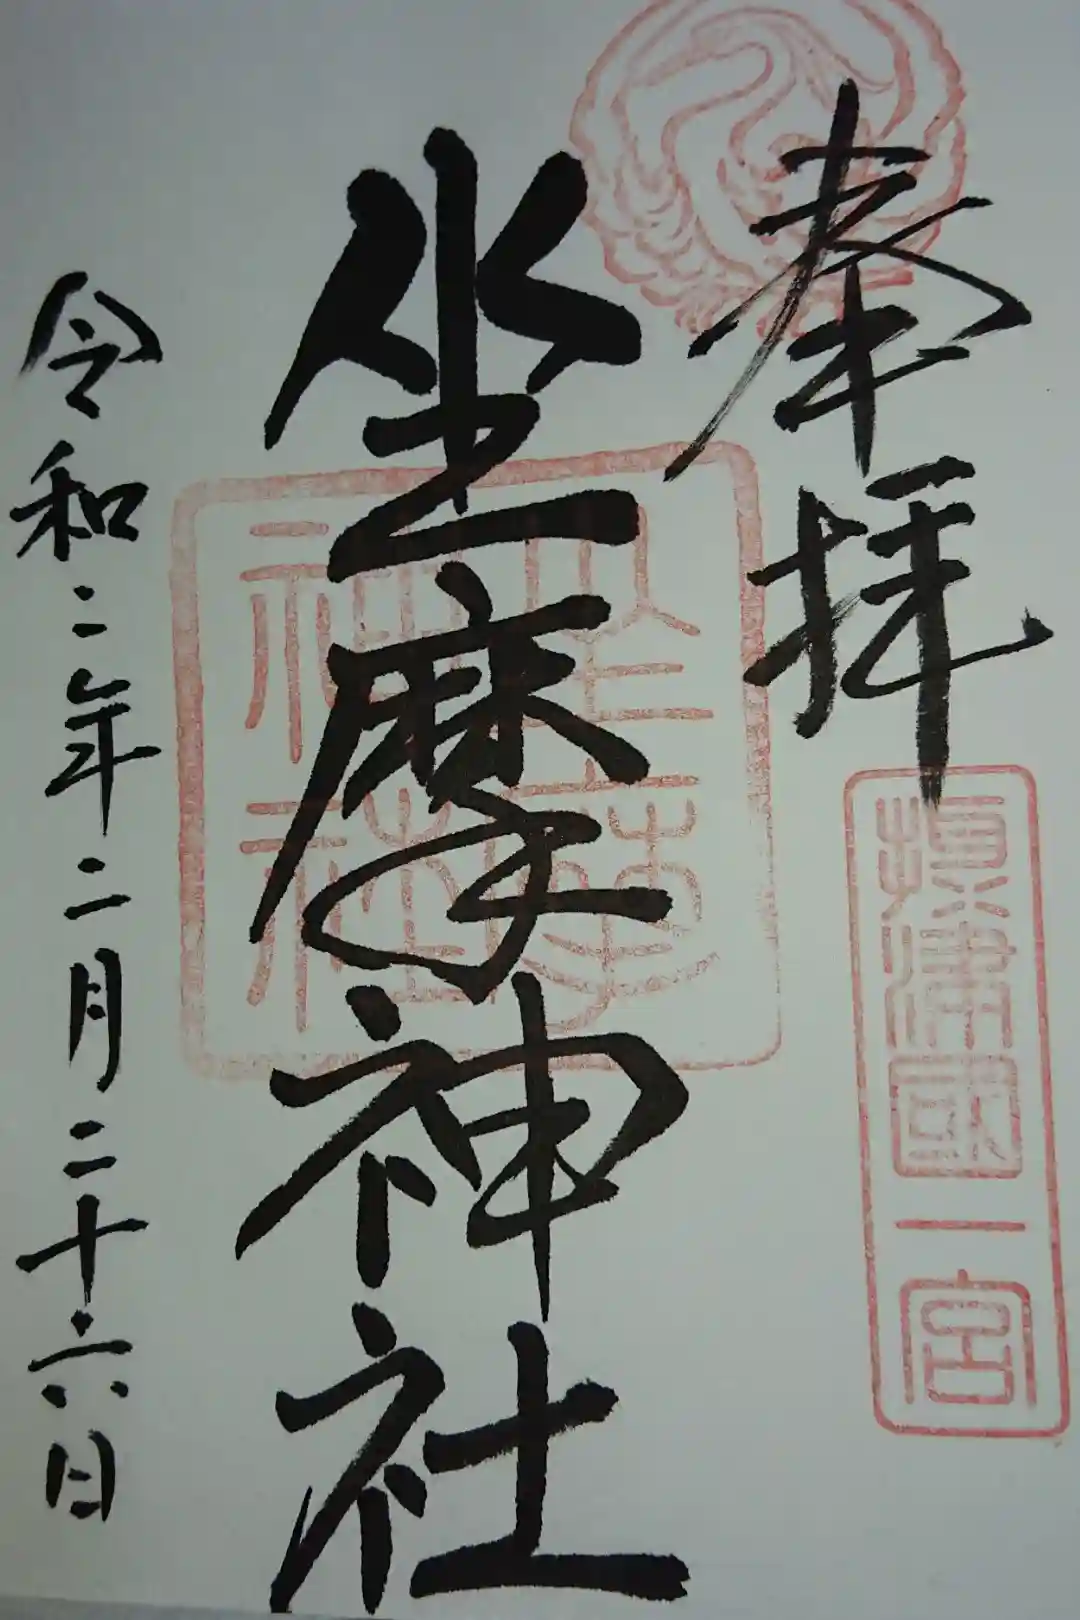 奉拝
摂津國一宮
坐摩神社
坐摩
神社
令和二年二月二十六日